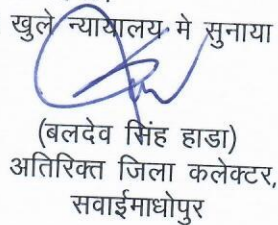 खुले न्यायालय मे सुनाया
(बलदेव सिंह हाडा)
अतिरिक्त जिला कलेक्टर,
सवाईमाधोपुर